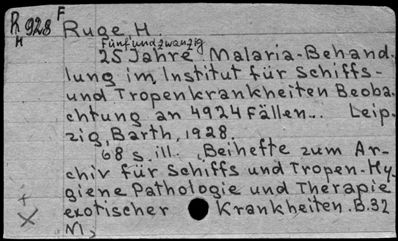 R 928 F
H
Ruge H
Fünfundzwanzig
25 Jahre Malaria-Behand.
lung im Institut für Schiffs-
und Tropenkrankheiten Beoba.
chtung an 4924 Fällen... Leip-
zig, Barth, 1928.
68 s. ill. , Beihefte zum Ar-
chiv für Schiffs und Tropen-Hy-
giene Pathologie und Therapie
exotischer Krankheiten. B.32
M,